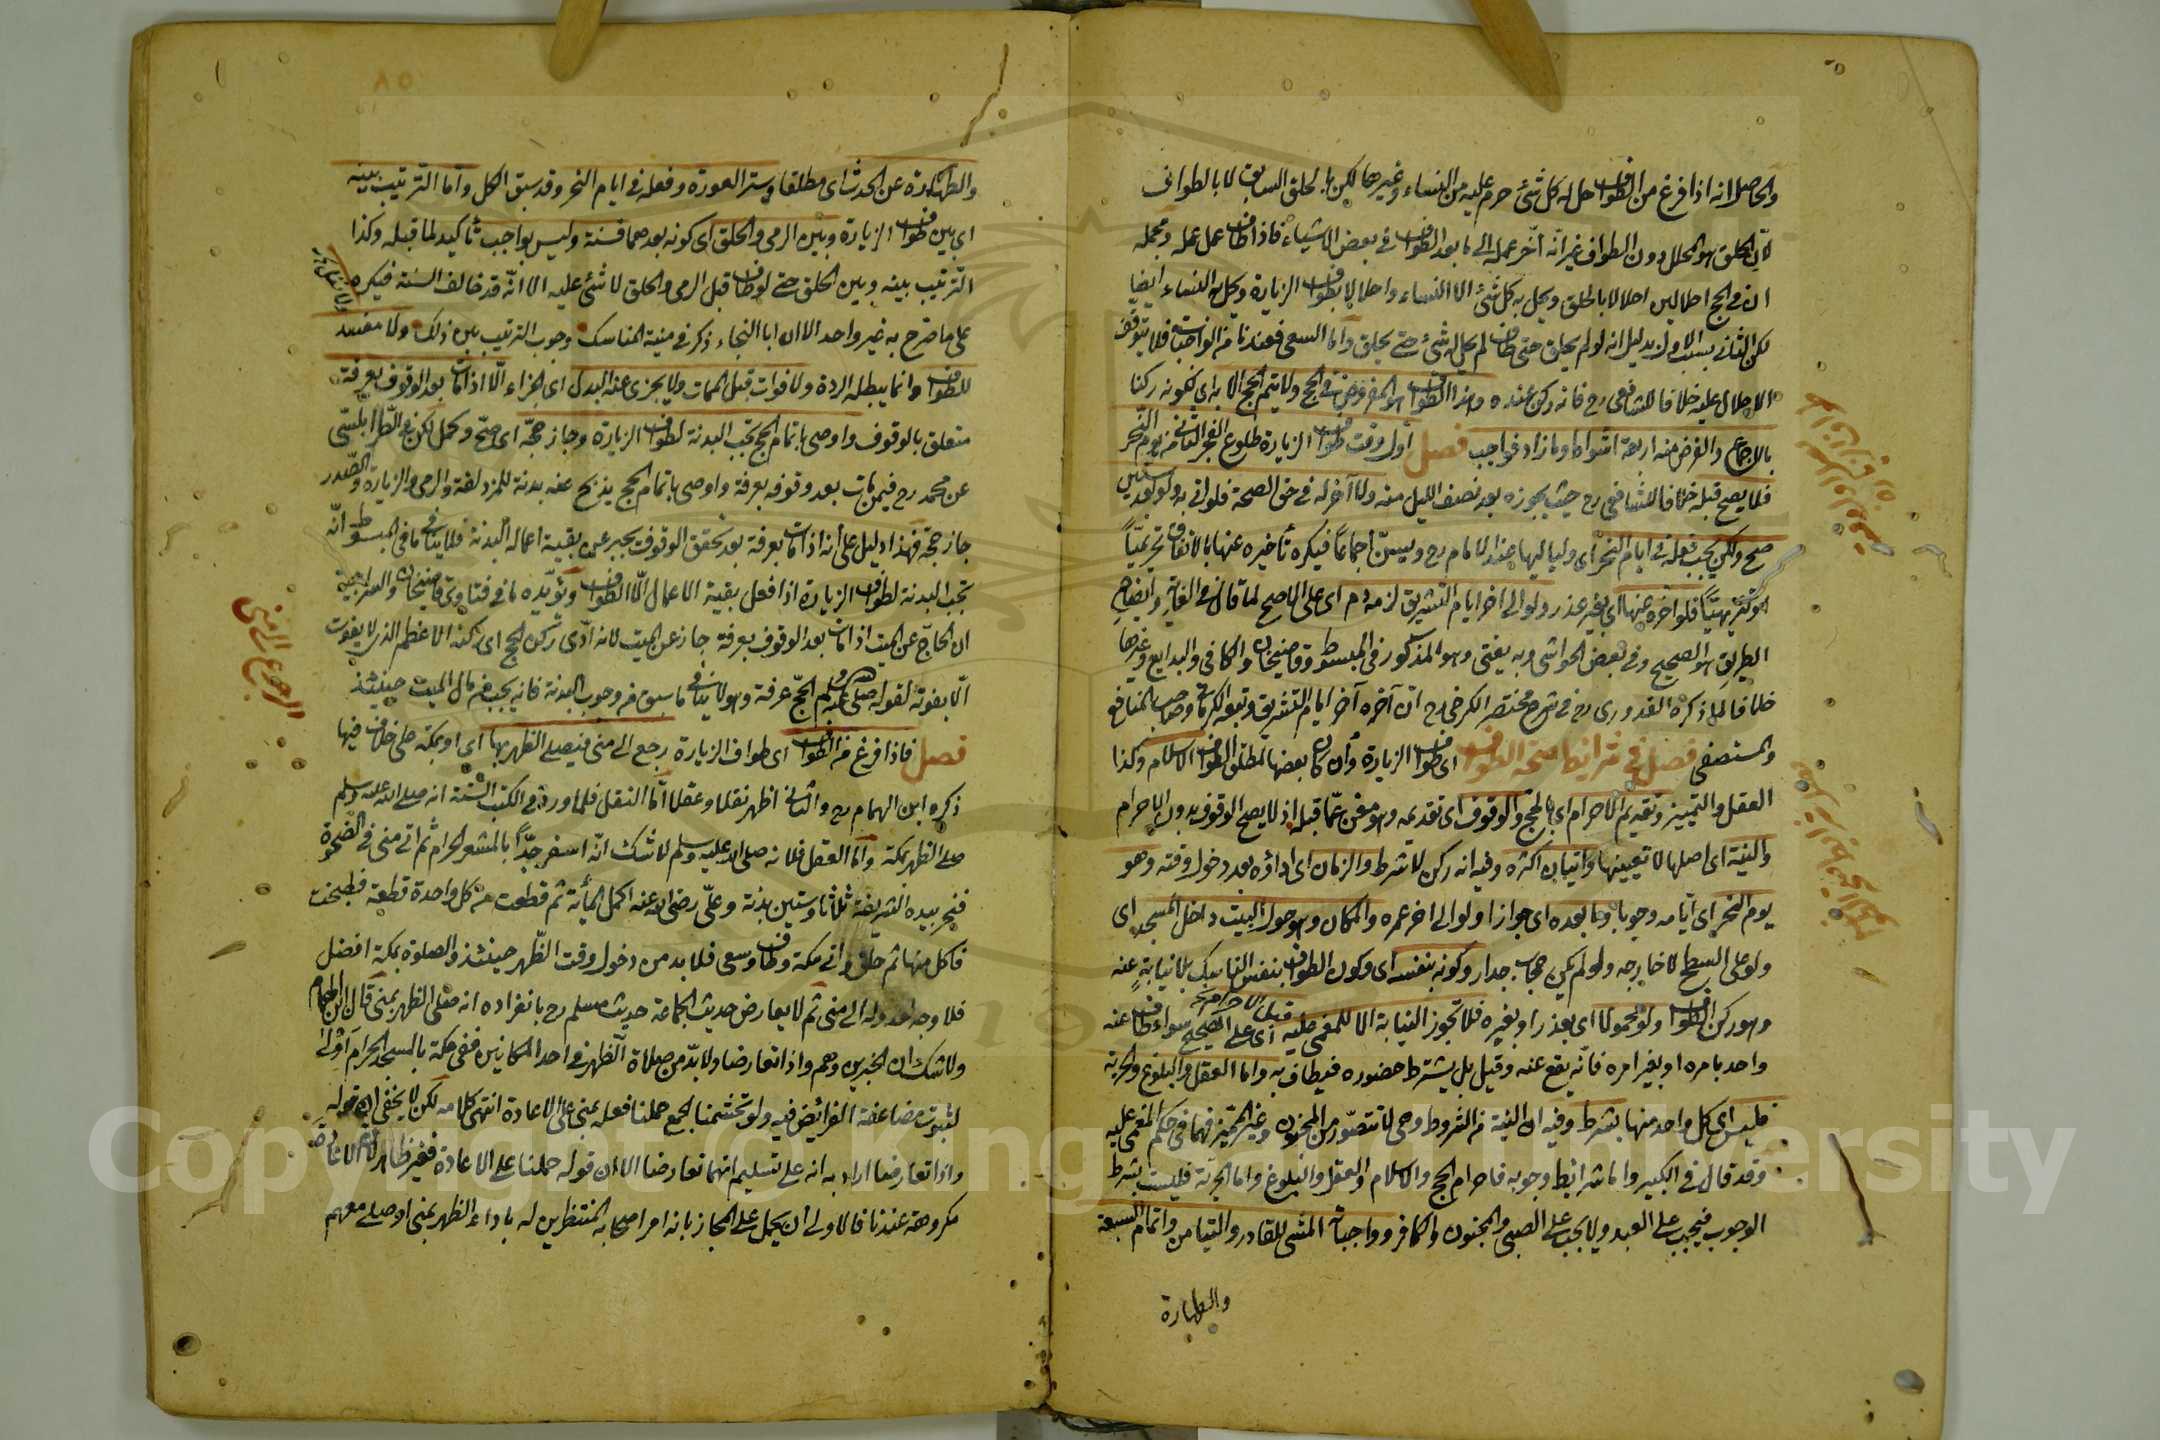 والحاصل انه اذا فرغ من الطواف حل له كل شئ حرم عليه من النساء وغيرها لكن بالحلق السابق لا بالطواف
لان الحلق هو المحلل دون الطواف غير انه اخر عمله الى ما بعد الطواف في بعض الاشياء فاذا طاف عمل عمله ومجمله
ان في الحج احلالين احلالا بالحلق ويحل به كل شئ الا النساء واحلالا بطواف الزيارة ويحل به النساء ايضا
لكن الثاني بسبب الاول بدليل انه لو لم يحلق حتى طاف لم يحل له شئ حتى يحلق واما السعي فعندنا من الواجبات فلا يتوقف
الاحلال عليه خلافا للشافعي رح فانه ركن عنده وهذا الطواف هو المفروض في الحج ولا يتم الحج الا به اي لكونه ركنا
بالاجماع والفرض منه اربعة اشواط وما زاد فواجب فصل اول وقت طواف الزيارة طلوع الفجر الثاني من يوم النحر
فلا يصح قبله خلافا للشافعي رح حيث يجوزه بعد نصف الليل منه ولا آخر له في حق الصحة فلو اتى به ولو بعد سنين
صح ولكن يجب فعله في ايام النحر اي ولياليها عند الامام رح ويسن اجماعا فيكره تأخيره عنها بالاتفاق تحريميا
او تنزيهيا فلو اخره عنها اي بغير عذر ولو الى اخر ايام التشريق لزمه دم اي على الاصح لما قال في الغاية وايضاح
الطريق هو الصحيح وفي بعض الحواشي وبه يفتى وهو المذكور في المبسوط وقاضيخان والكافي والبدايع وغيرها
خلافا لما ذكره القدوري رح في شرح مختصر الكرخي رح ان آخره آخر ايام التشريق وتبعه الكرماني وصاحب المنافع
والمستصفى فصل في شرائط صحة الطواف اي طواف الزيارة وان كان بعضها لمطلق الطواف الاسلام وكذا
العقل والتمييز وتقديم الاحرام اي بالحج والوقوف اي تقديمه وهو مغن عما قبله اذ لا يصح الوقوف بدون الاحرام
والنية اي اصلها لا تعيينها واتيان اكثره وفيه انه ركن لا شرط والزمان اي اداؤه بعد دخول وقته وهو
يوم النحر اي ايامه وجوبا وما بعده اي جوازا ولو الى اخر عمره والمكان وهو حول البيت داخل المسجد اي
ولو على السطح لا خارجه ولو لم يكن حجاب جدار وكونه بنفسه اي وكون الطواف بنفس الناسك بلا نيابة عنه
وهو ركن الطواف ولو محمولا اي بعذر او بغيره فلا تجوز النيابة الا للمغمى عليه قبل الاحرام اي على الصحيح سواء طاف عنه
واحد بامره او بغير امره فانه يقع عنه وقيل بل يشترط حضوره فيطاف به واما العقل والبلوغ والحرية
فليس اي كل واحد منها بشرط وفيه ان النية من الشروط وهي لا تتصور من المجنون وغير المميز فهما في حكم المغمى عليه
وقد قال في الكبير واما شرائط وجوبه فاحرام الحج والاسلام والعقل والبلوغ واما الحرية فليست بشرط
الوجوب فيجب على العبد ولا يجب على الصبي والمجنون والكافر وواجباته المشي للقادر والتيامن واتمام السبعة
والطهارة
والطهارة عن الحدث اي مطلقا وستر العورة وفعله في ايام النحر وقد سبق الكل واما الترتيب بينه
اي بين طواف الزيارة وبين الرمي والحلق اي كونه بعدهما فسنة وليس بواجب تأكيد لما قبله وكذا
الترتيب بينه وبين الحلق حتى لو طاف قبل الرمي والحلق لا شئ عليه الا انه قد خالف السنة فيكره
على ما صرح به غير واحد الا ان ابا النجاء ذكر في منية المناسك وجوب الترتيب بين ذلك ولا مفسد
للطواف وانما يبطله الردة ولا فوات قبل الممات ولا يجزي عنه البدل اي الجزاء الا اذا مات بعد الوقوف بعرفة
متعلق بالوقوف واوصى باتمام الحج تجب البدنة لطواف الزيارة وجاز حجه اي صح وكمل لكن في الطرابلسي
عن محمد رح فيمن مات بعد وقوفه بعرفة واوصى باتمام الحج يذبح عنه بدنة للمزدلفة والرمي والزيارة والصدر
جاز حجه فهذا دليل على أنه اذا مات بعرفة بعد تحقق الوقوف يجبر عن بقية اعماله البدنة فلا ينافي ما في المبسوط انه
تجب البدنة لطواف الزيارة اذا فعل بقية الاعمال الا الطواف ويؤيده ما في فتاوى قاضيخان والسراجية
ان الحاج عن الميت اذا مات بعد الوقوف بعرفة جاز عن الميت لانه ادى ركن الحج اي ركنه الاعظم الذي لا يفوت
الا بفوته لقوله صلى الله عليه وسلم الحج عرفة وهو لا ينافي ما سبق من وجوب البدنة فانه يجب من مال الميت حينئذ
فصل فاذا فرغ من الطواف اي طواف الزيارة رجع الى منى فيصلي الظهر بها اي او بمكة على خلاف فيها
ذكره ابن الهمام رح والثاني اظهر نقلا وعقلا اما النقل فلما ورد في الكتب الستة انه صلى الله عليه وسلم
صلى الظهر بمكة واما العقل فلانه صلى الله عليه وسلم لا شك انه اسفر جدا بالمشعر الحرام ثم اتى منى في الضحوة
فنحر بيده الشريفة ثلاثا وستين بدنة وعلي رضي الله عنه اكمل المأية ثم قطعت من كل واحدة قطعة فطبخت
فاكل منها ثم حلق واتى مكة وطاف وسعى فلا بد من دخول وقت الظهر حينئذ والصلوة بمكة افضل
فلا وجه لعدوله الى منى ثم لا يعارض حديث الجماعة حديث مسلم رح بانفراده انه صلى الظهر بمنى قال ابن الهمام
ولا شك ان الخبرين وهم واذا تعارضا ولا بد من صلاة الظهر في احد المكانين ففي مكة بالمسجد الحرام اولى
لثبوت مضاعفة الفرائض فيه ولو تجشمنا الجمع حملنا فعله بمنى على الاعادة انتهى كلامه لكن لا يخفى ان قوله
واذا تعارضا اراد به انه على تسليم انهما تعارضا الا ان قوله حملنا على الاعادة فغير ظاهر لان الاعادة
مكروهة عندنا فالاولى أن يحمل على المجاز بانه امر اصحابه المنتظرين له باداء الظهر بمنى او صلى معهم
الرجوع الى منى
Copyright © King Saud University